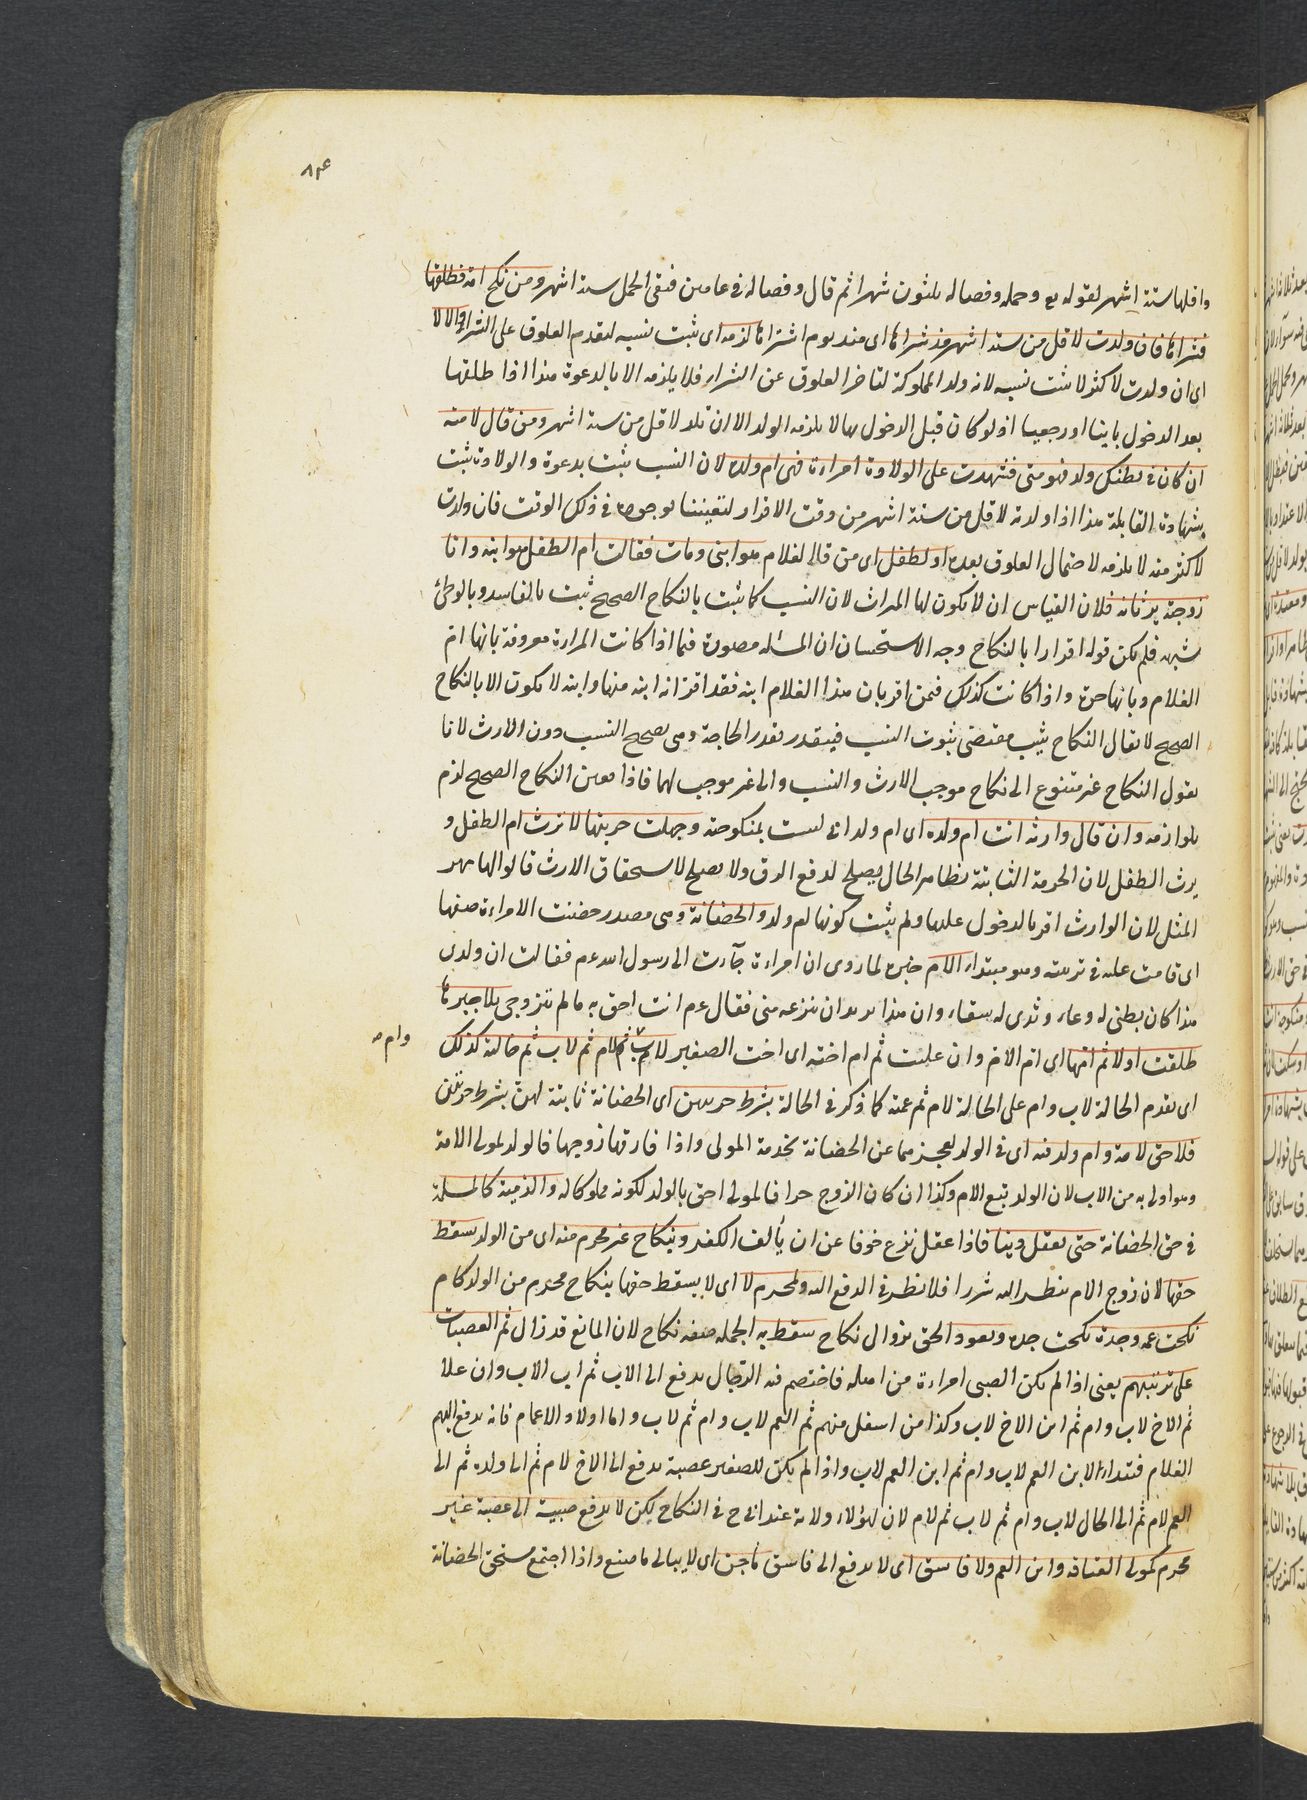 ٨٣٤
واقلها ستة اشهر لقوله تع وحمله وفصاله ثلثون شهرا ثم قال وفصاله في عامين فبقى الحمل ستة اشهر ومن نكح امة فطلقها
فشراها فان ولدت لاقل من ستة اشهر منذ شراها اى منذ يوم اشتراها لزمه اى ثبت نسبه لتقدم العلوق على الشراء والا لا
اى ان ولدت لاكثر لا يثبت نسبه لانه ولد المملوكة لتاخر العلوق عن الشراء فلا يلزمه الا بالدعوة هذا اذا طلقها
بعد الدخول باينا او رجعيا اذ لو كان قبل الدخول بها لا يلزمه الولد الا ان تلد لاقل من ستة اشهر ومن قال لامته
ان كان في بطنك ولد فهو منى فشهدت على الولادة امراءة فهى ام ولده لان النسب يثبت بدعوة والولادة يثبت
بشهادة القابلة هذا اذا ولدته لاقل من ستة اشهر من وقت الاقرار لتعيننا بوجوده في ذلك الوقت فان ولدت
لاكثر منه لا يلزمه لاحتمال العلوق بعده او لطفل اى من قال لغلام هو ابنى ومات فقالت ام الطفل هو ابنه وانا
زوجته يرثانه فلان القياس ان لا يكون لها الميراث لان النسب كما يثبت بالنكاح الصحيح يثبت بالفاسد وبالوطئ
شبهه فلم يكن قوله اقرارا بالنكاح وجه الاستحسان ان المسئله مصورة فيما اذا كانت المراءة معروفة بانها ام
الغلام وبانها حرة واذا كانت كذلك فمن اقر بان هذا الغلام ابنه فقد اقر انه ابنه منها وابنه لا يكون الا بالنكاح
الصحيح لا يقال النكاح يثبت بمقتضى ثبوت النسب فيتقدر بقدر الحاجة وهى تصحيح النسب دون الارث لانا
نقول النكاح غير متنوع الى نكاح موجب الارث والنسب والى غير موجب لهما فاذا تعين النكاح الصحيح لزم
بلوازمه وان قال وارثه انت ام ولده اى ام ولد ابى لست بمنكوحته وجهلت حريتها لا ترث ام الطفل و
يرث الطفل لان الحرمة الثابتة بظاهر الحال يصلح لدفع الرق ولا يصلح لاستحقاق الارث قالوا لها مهر
المثل لان الوارث اقر بالدخول عليها ولم يثبت كونها ام ولد والحضانة وهى مصدر حضنت الامراءة صبيها
اى قامت عليه في تربيته وهو مبتداء الام خبره لما روى ان امراءة جآءت الى رسول الله عم فقالت ان ولدى
هذا كان بطنى له وعاء وثدى له سقاء وان هذا يريد ان ينزعه منى فقال عم انت احق به ما لم تتزوجى بلا جبرها
طلقت اولا ثم امها اى ام الام وان علت ثم ام ابيه ثم اخته اى اخت الصغير لاب ثم لام ثم لاب ثم خالته كذلك
وام صح
اى تقدم الخالة لاب وام على الخالة لام ثم عمته كما ذكر في الخالة بشرط حريتهن اى الحضانة ثابتة لهن بشرط حريتهن
فلا حق لامة وام ولد فيه اى في الولد لعجزهما عن الحضانة بخدمة المولى واذا فارقها زوجها فالولد لمولى الامة
وهو اولى به من الاب لان الولد تبع الام وكذا ان كان الزوج حرا فالمولى احق بالولد لكونه مملوكا له والذمية كالمسلمة
في حق الحضانة حتى يعقل دينا فاذا عقل نزع خوفا عن ان يألف الكفر وبنكاح غير محرم منه اى من الولد سقط
حقها لان زوج الام ينظر اليه شزرا فلا نظر في الدفع اليه ولمحرم لا اى لا يسقط حقها بنكاح محرم من الولد كام
نكحت عمه وجدة نكحت جده ويعود الحق بزوال نكاح سقط به الجمله صفة نكاح لان المانع قد زال ثم العصبات
على ترتيبهم يعنى اذا لم يكن الصبى امراءة من اهله فاختصم فيه الرجال يدفع الى الاب ثم اب الاب وان علا
ثم الاخ لاب وام ثم ابن الاخ لاب وكذا من اسفل منهم ثم العم لاب وام ثم لاب واما اولاد الاعمام فانه يدفع اليهم
الغلام فتبداء الابن العم لاب وام ثم ابن العم لاب واذا لم يكن للصغير عصبة يدفع الى الاخ لام ثم الى ولده ثم الى
العم لام ثم الى الخال لاب وام ثم لاب ثم لام لان لهؤلاء ولاية عند ابى ح في النكاح لكن لا يدفع صبية الى عصبة غير
محرم كمولى العتاقه وابن العم ولا فاسق اى لا يدفع الى فاسق ماجن اى لا يبالى ما صنع واذا اجتمع مستحق الحضانة